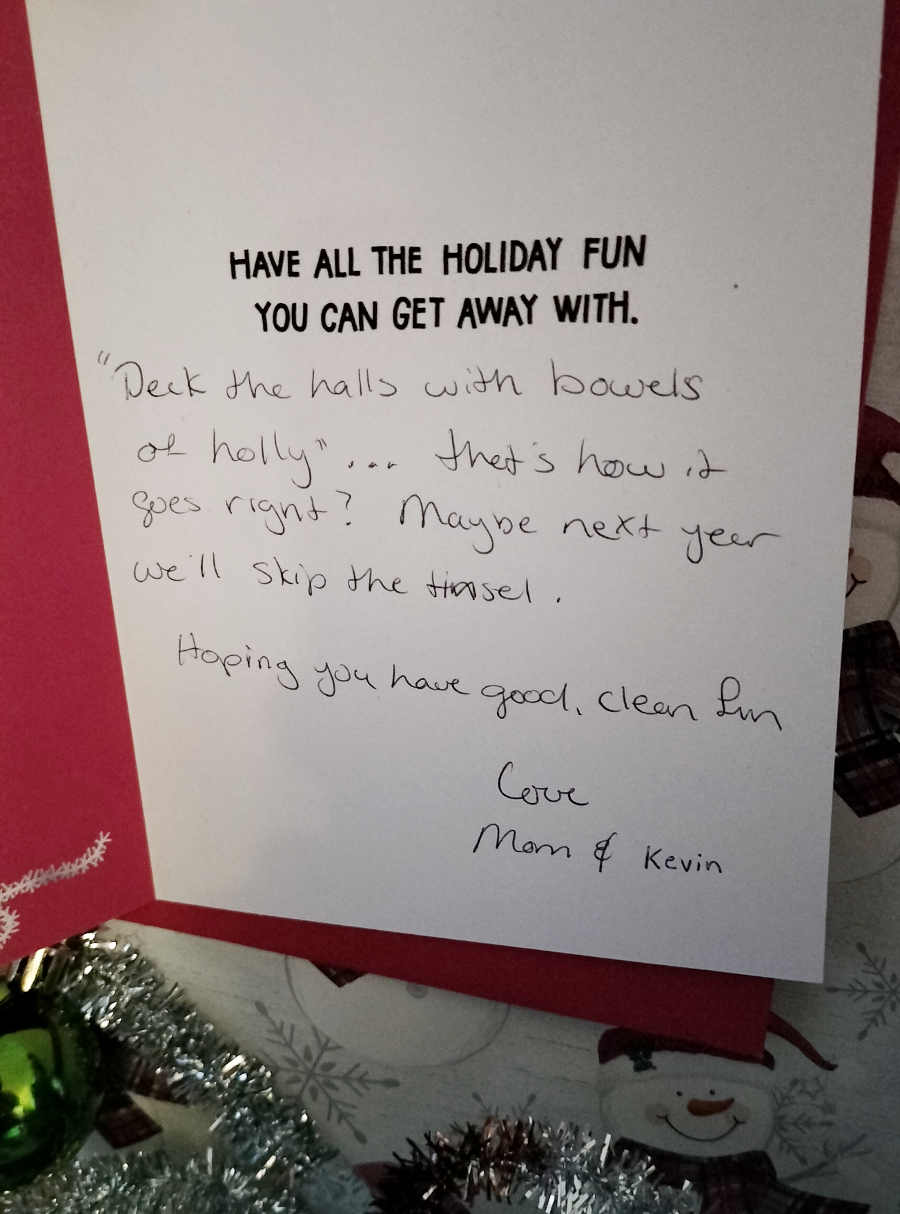 HAVE ALL THE HOLIDAY FUN
YOU CAN GET AWAY WITH.
"Deck the halls with bowels
of holly"... that's how it
goes right? Maybe next year
we'll skip the tinsel.
Hoping you have good, clean fun
Love
Mom & Kevin